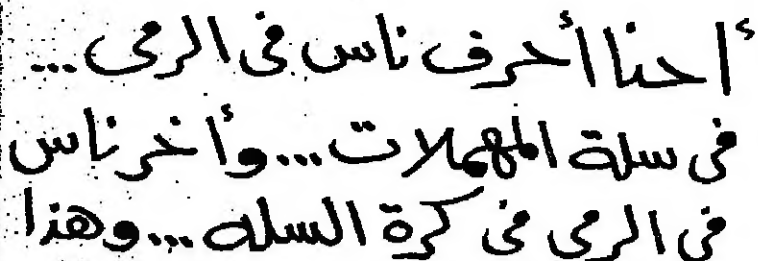 أحنا أحرف ناس فى الرمى...
فى سلة المهملات... وأخر ناس
فى الرمى فى كرة السله... وهذا